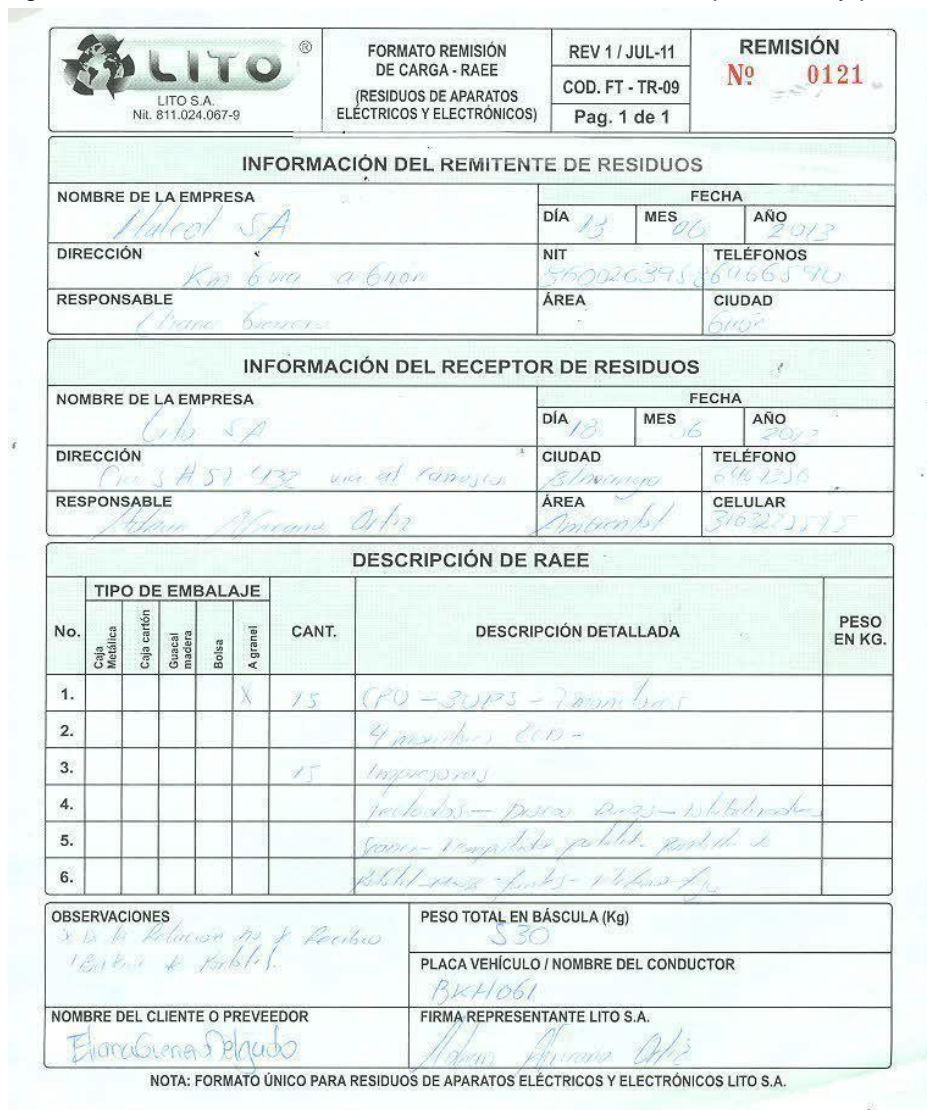 LITO ®
LITO S.A.
Nit. 811.024.067-9
FORMATO REMISIÓN
DE CARGA - RAEE
(RESIDUOS DE APARATOS
ELÉCTRICOS Y ELECTRÓNICOS)
REV 1 / JUL-11
COD. FT - TR-09
Pag. 1 de 1
REMISIÓN
Nº 0121
INFORMACIÓN DEL REMITENTE DE RESIDUOS
NOMBRE DE LA EMPRESA
SA
FECHA
DÍA 13 MES 06 AÑO 2013
DIRECCIÓN
Km 6 via a Girón
NIT
TELÉFONOS
6466590
RESPONSABLE
ÁREA
CIUDAD
Girón
INFORMACIÓN DEL RECEPTOR DE RESIDUOS
NOMBRE DE LA EMPRESA
Lito SA
FECHA
DÍA MES 6 AÑO 2013
DIRECCIÓN
via al
CIUDAD
TELÉFONO
RESPONSABLE
Ortiz
ÁREA
Ambiental
CELULAR
DESCRIPCIÓN DE RAEE
No.
TIPO DE EMBALAJE
Caja Metálica
Caja cartón
Guacal madera
Bolsa
A granel
CANT.
DESCRIPCIÓN DETALLADA
PESO EN KG.
1. X 15 CPU - 3UPS - 7 monitores
2. 4 monitores
3. 15 Impresoras
4. Teclados - Discos Duros -
5. portatil
6.
OBSERVACIONES
la Relación no se Recibio
PESO TOTAL EN BÁSCULA (Kg)
530
PLACA VEHÍCULO / NOMBRE DEL CONDUCTOR
BKH061
NOMBRE DEL CLIENTE O PREVEEDOR
Delgado
FIRMA REPRESENTANTE LITO S.A.
Ortiz
NOTA: FORMATO ÚNICO PARA RESIDUOS DE APARATOS ELÉCTRICOS Y ELECTRÓNICOS LITO S.A.